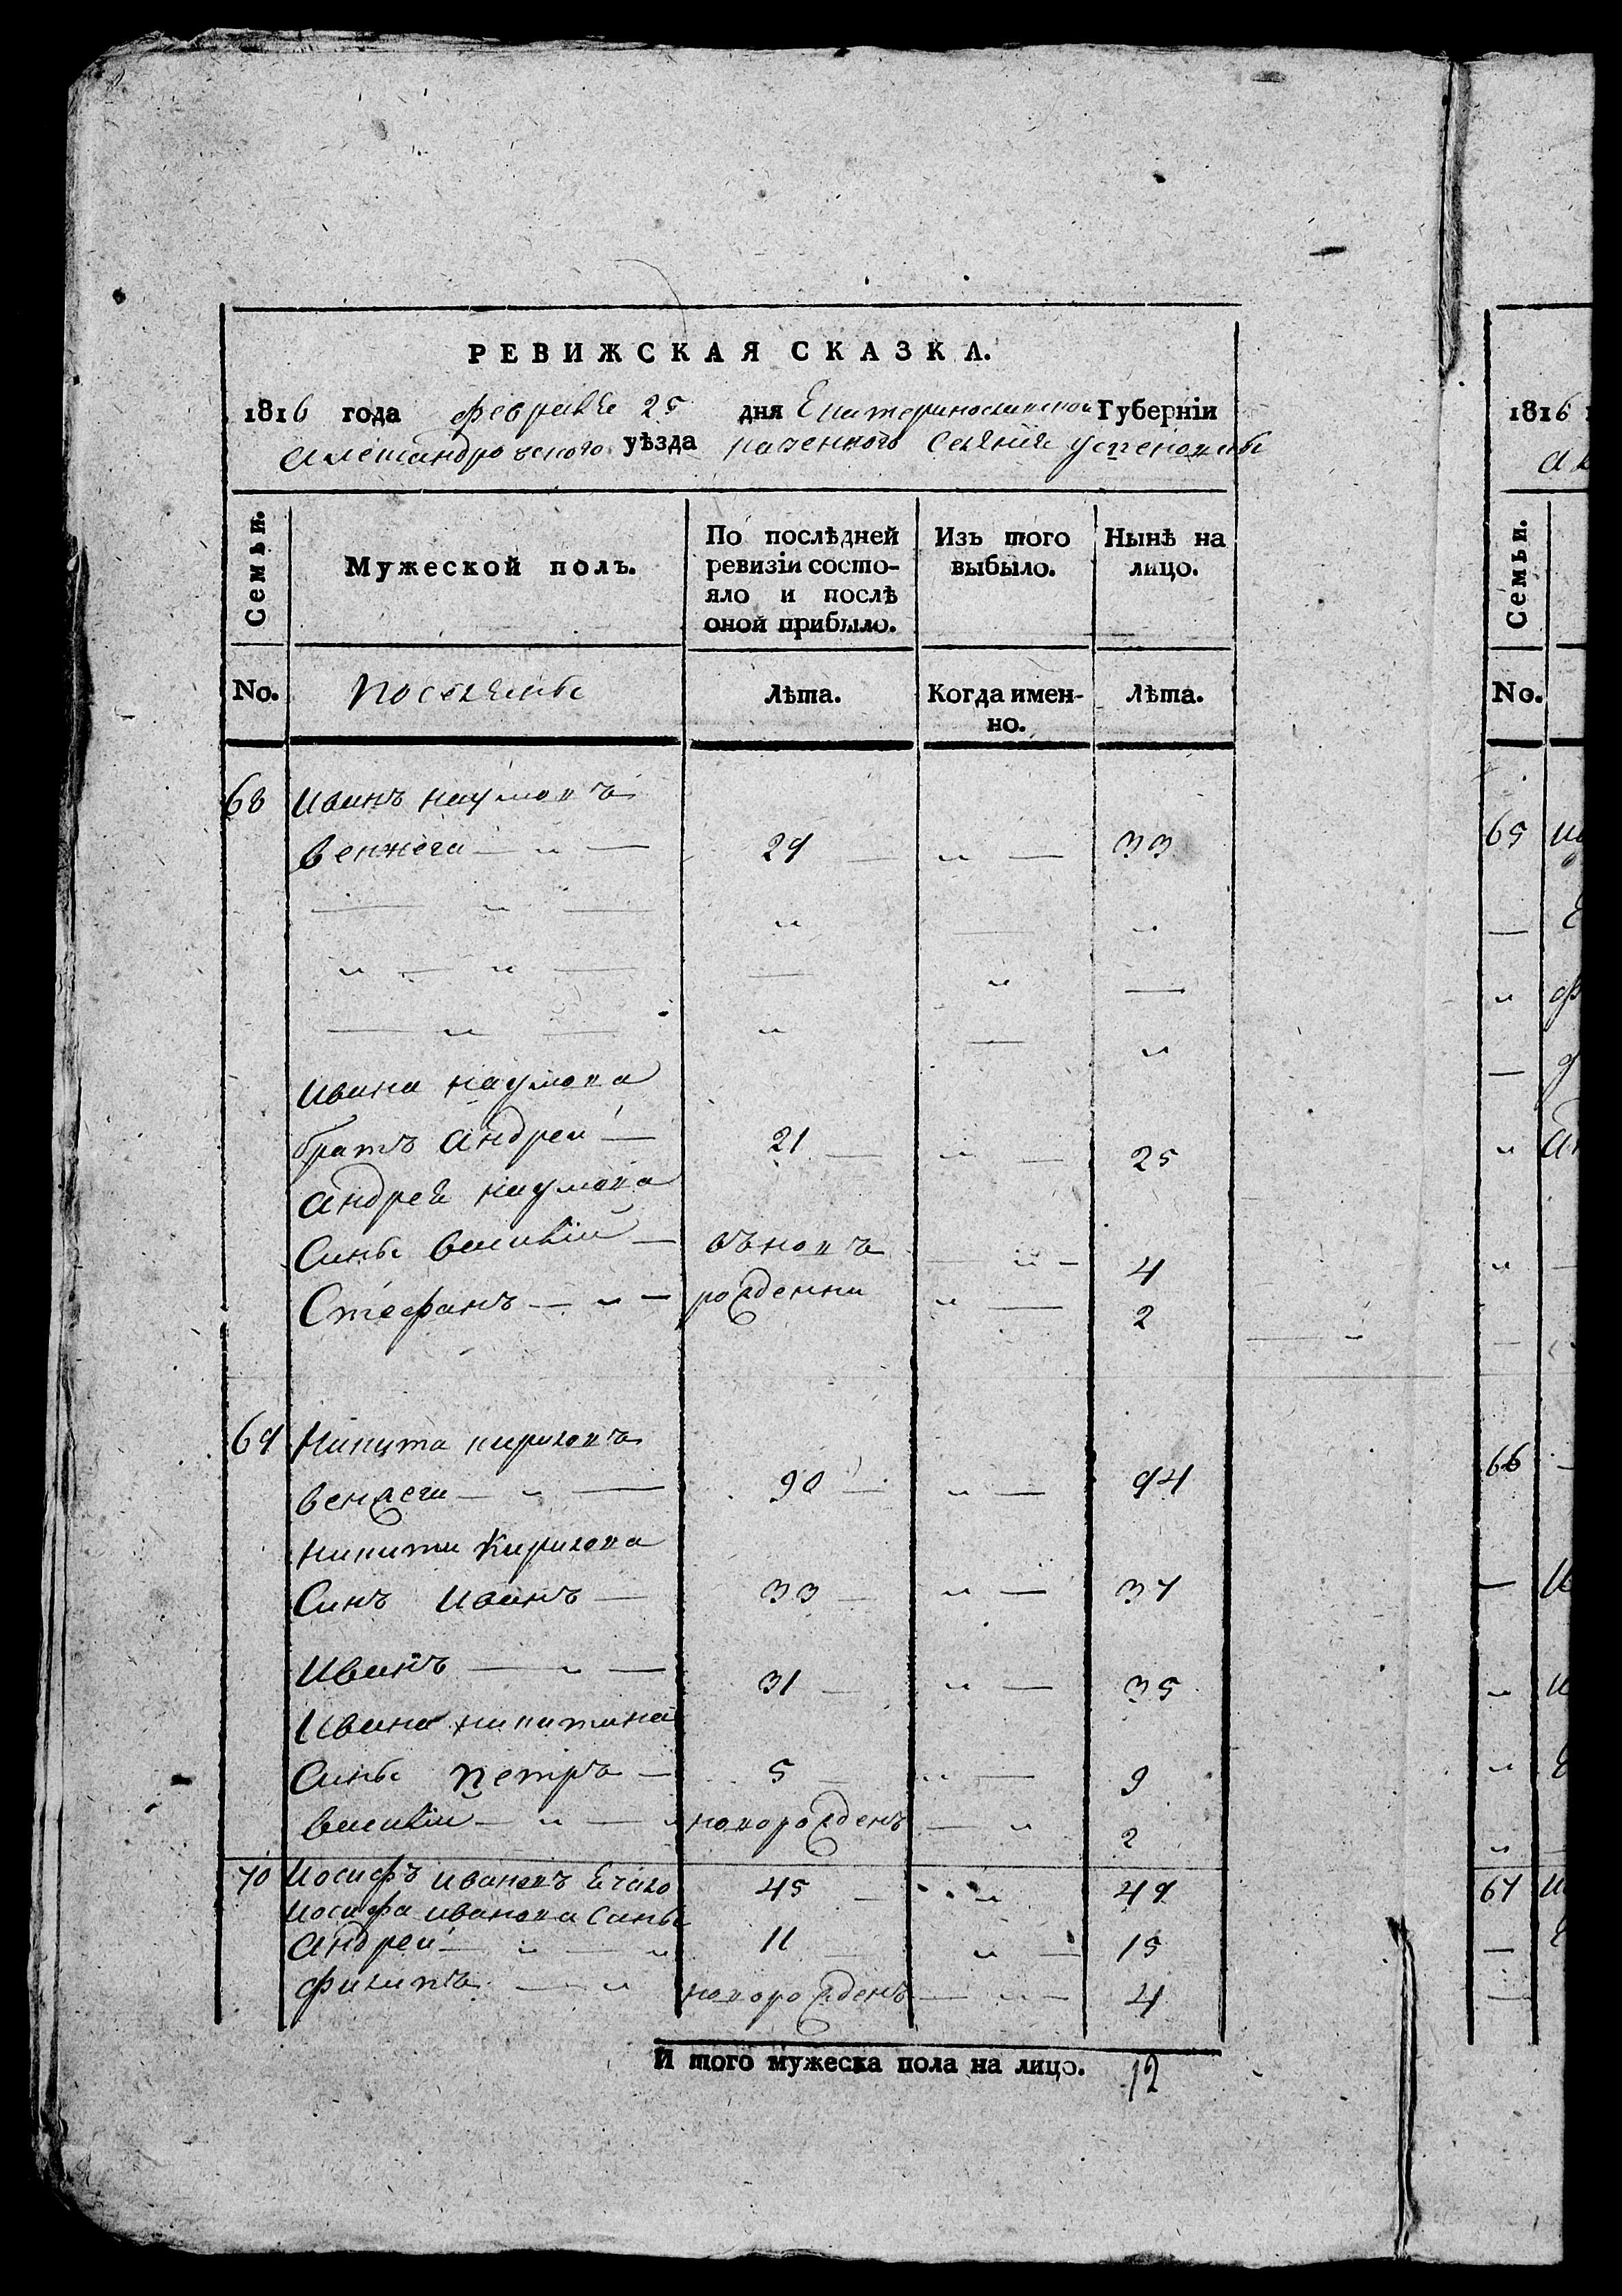 РЕВИЖСКАЯ СКАЗКА.
1816 года февраля 25 дня Екатеринославской Губерніи
Александровского уѣзда казенного Селения
Семьи. Мужеской полъ. По послѣдней ревизіи состояло и послѣ оной прибыло. Изъ того выбыло. Нынѣ на лицо.
No. Поселяне Лѣта. Когда именно. Лѣта.
68 Иванъ наумовъ
29 — „ — 33
— „ — „ — „
„ — „ — — „ —
— „ — „ — „
Ивана наумова
братъ андреи — 21 — „ — 25
андрея наумова
Синъ василій — въновъ — „ — 4
Стефанъ — „ — рожденни „ — 2
69 Никита кириловъ
90 — „ — 94
никити Кирилова
Синъ Иванъ — 33 — „ — 37
Иванъ — „ — 31 — „ — 35
Ивана никитина
Синъ петръ — 5 — „ — 9
василіи — „ — „ новорожденъ — „ 2
70 Иосифъ ивановъ 45 — „ 49
Иосифа иванова Синъ
андреи — „ — „ 11 — „ — 15
филипъ — „ новорожденъ — „ — 4
И того мужеска пола на лицо. 12
1816
Семьи.
No.
65
66
67